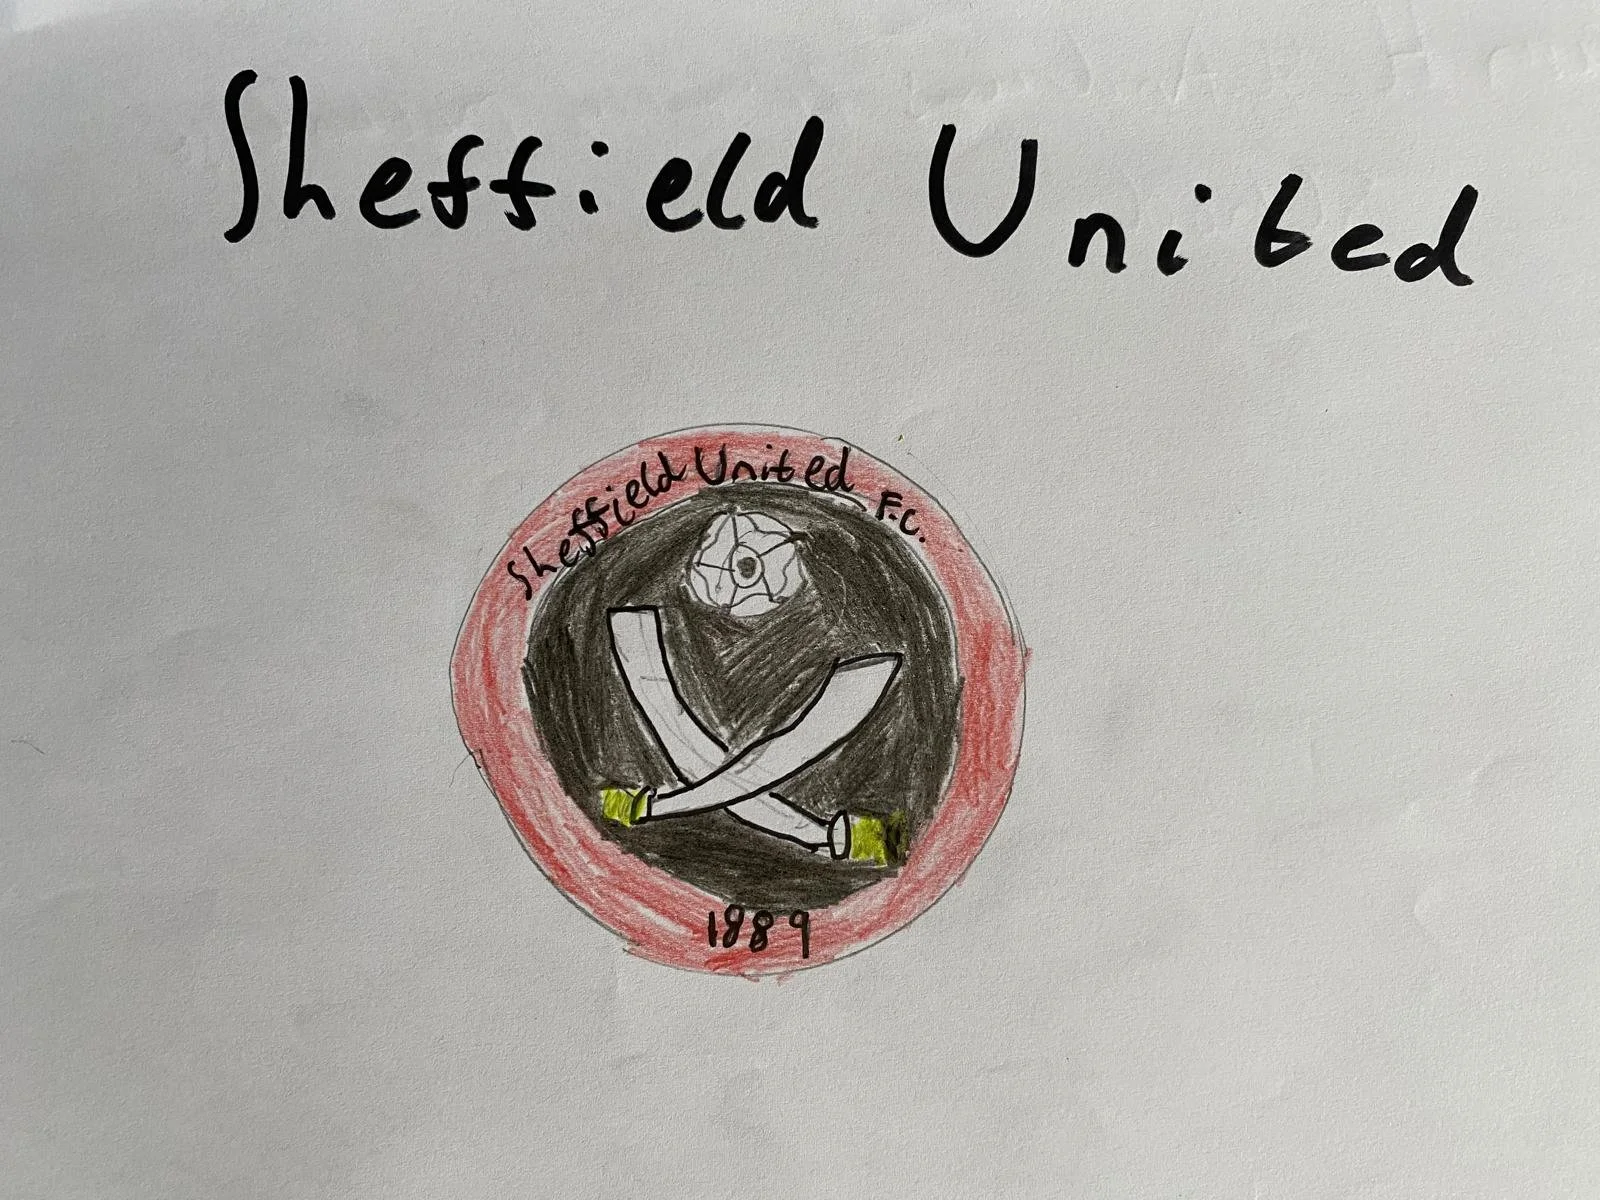 Sheffield United
Sheffield United F.C.
1889